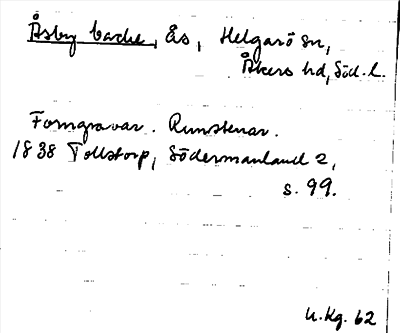 Åsby backe, Ås, Helgarö sn,
Åkers hd, Söd. l.
Forngravar. Runstenar.
1838 Tollstorp, Södermanland 2,
s. 99.
U. Kg. 62